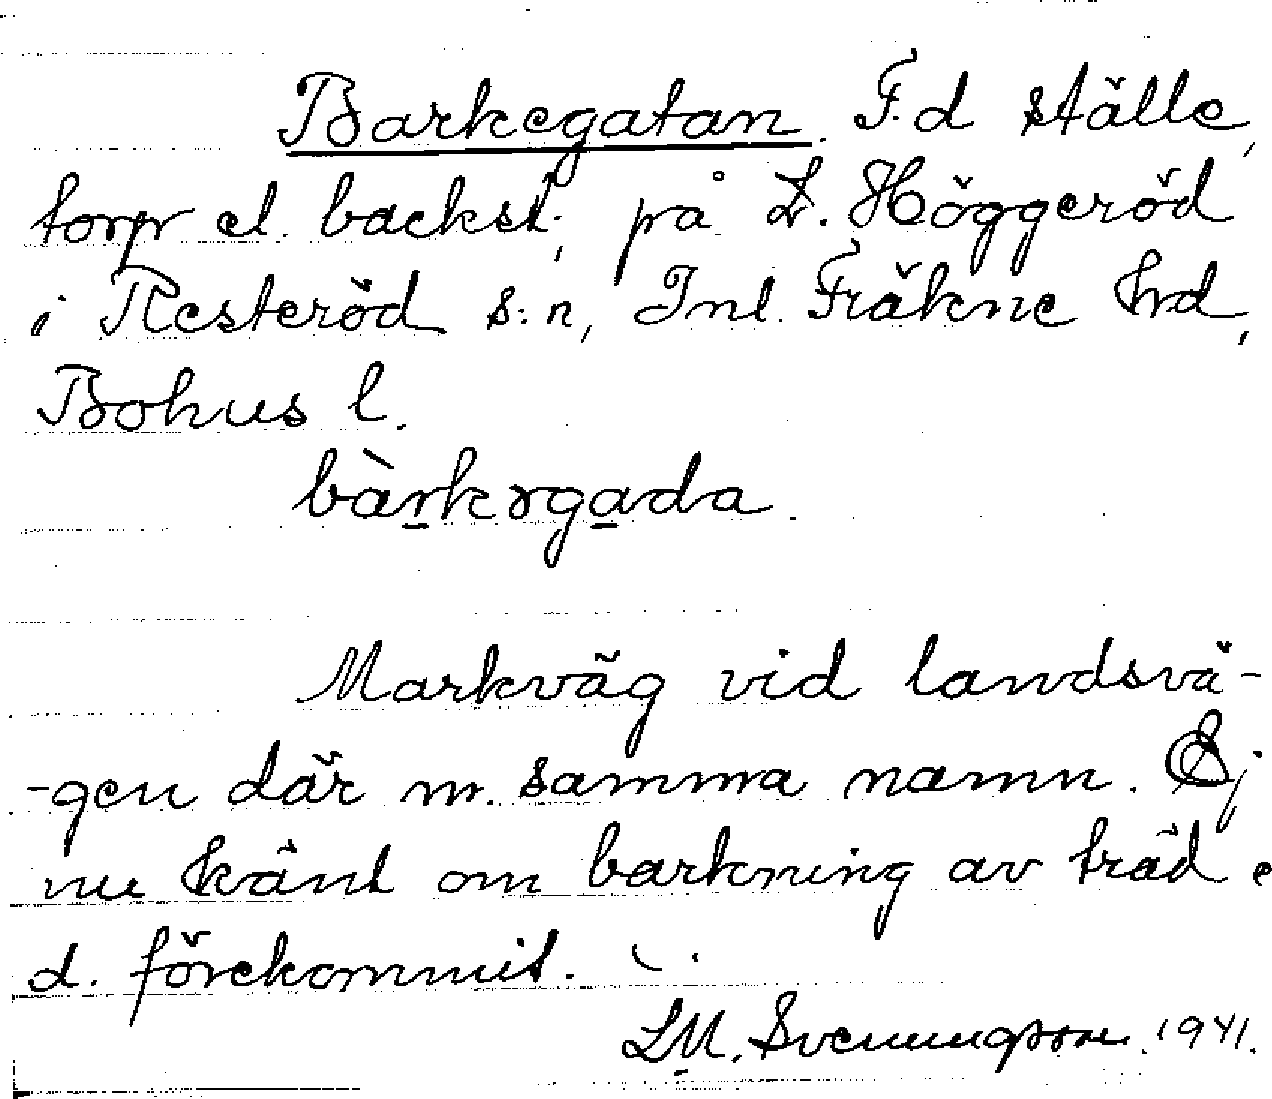 Barkegatan. F.d ställe,
torp el. backst., på L. Höggeröd
i Resteröd s:n, Inl. Fräkne hrd,
Bohus l.
bàrkəgada.
Markväg vid landsvä-
-gen där m. samma namn. Ej
nu känt om barkning av träd e
d. förekommit.
LM. Svenungsson. 1941.